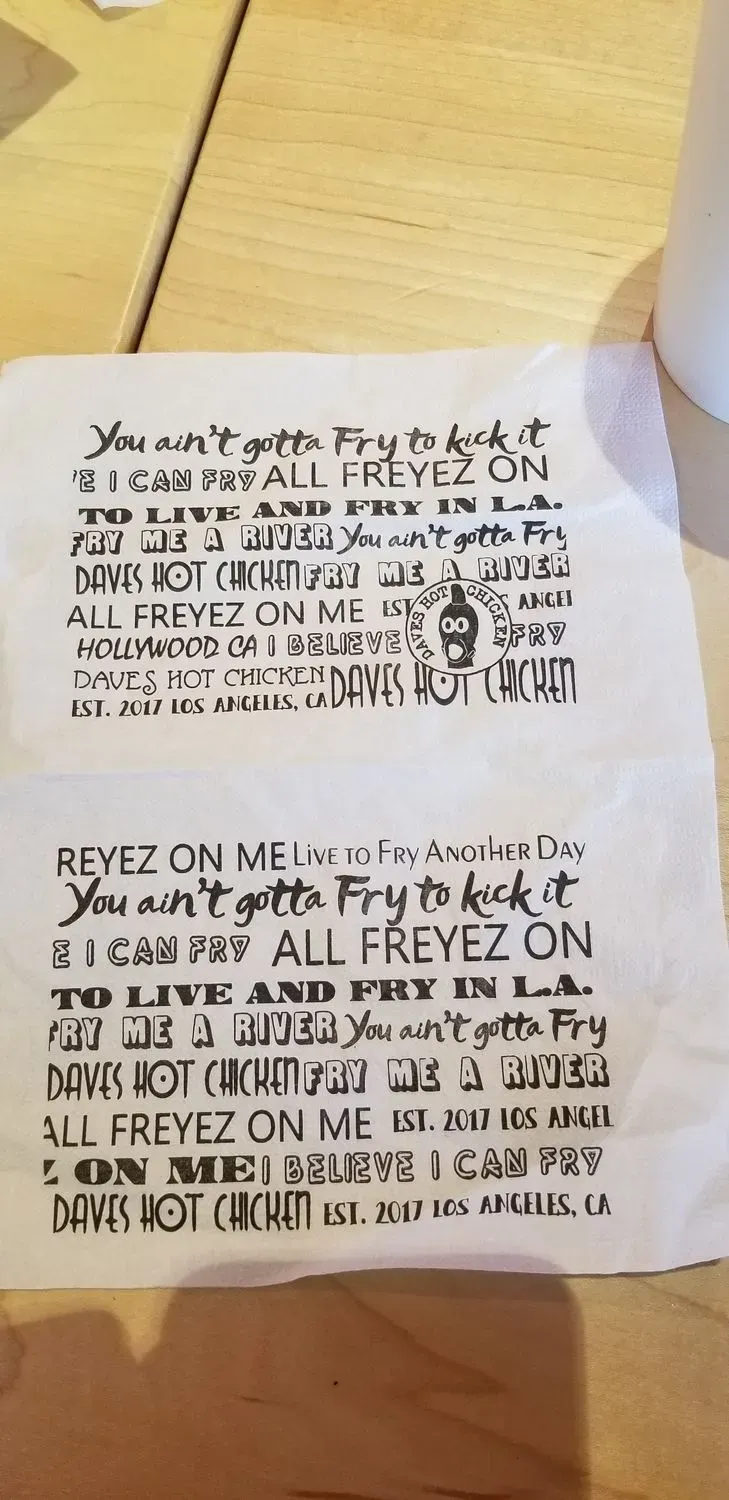 You ain't gotta Fry to kick it
'E I CAN FRY ALL FREYEZ ON
TO LIVE AND FRY IN L.A.
FRY ME A RIVER You ain't gotta Fry
DAVES HOT CHICKEN FRY ME A RIVER
ALL FREYEZ ON ME EST ANGEL
HOLLYWOOD CA I BELIEVE FRY
DAVES HOT CHICKEN
DAVES HOT CHICKEN DAVES HOT CHICKEN
EST. 2017 LOS ANGELES, CA
REYEZ ON ME LIVE TO FRY ANOTHER DAY
You ain't gotta Fry to kick it
E I CAN FRY ALL FREYEZ ON
TO LIVE AND FRY IN L.A.
FRY ME A RIVER You ain't gotta Fry
DAVES HOT CHICKEN FRY ME A RIVER
ALL FREYEZ ON ME EST. 2017 LOS ANGEL
Z ON ME I BELIEVE I CAN FRY
DAVES HOT CHICKEN EST. 2017 LOS ANGELES, CA